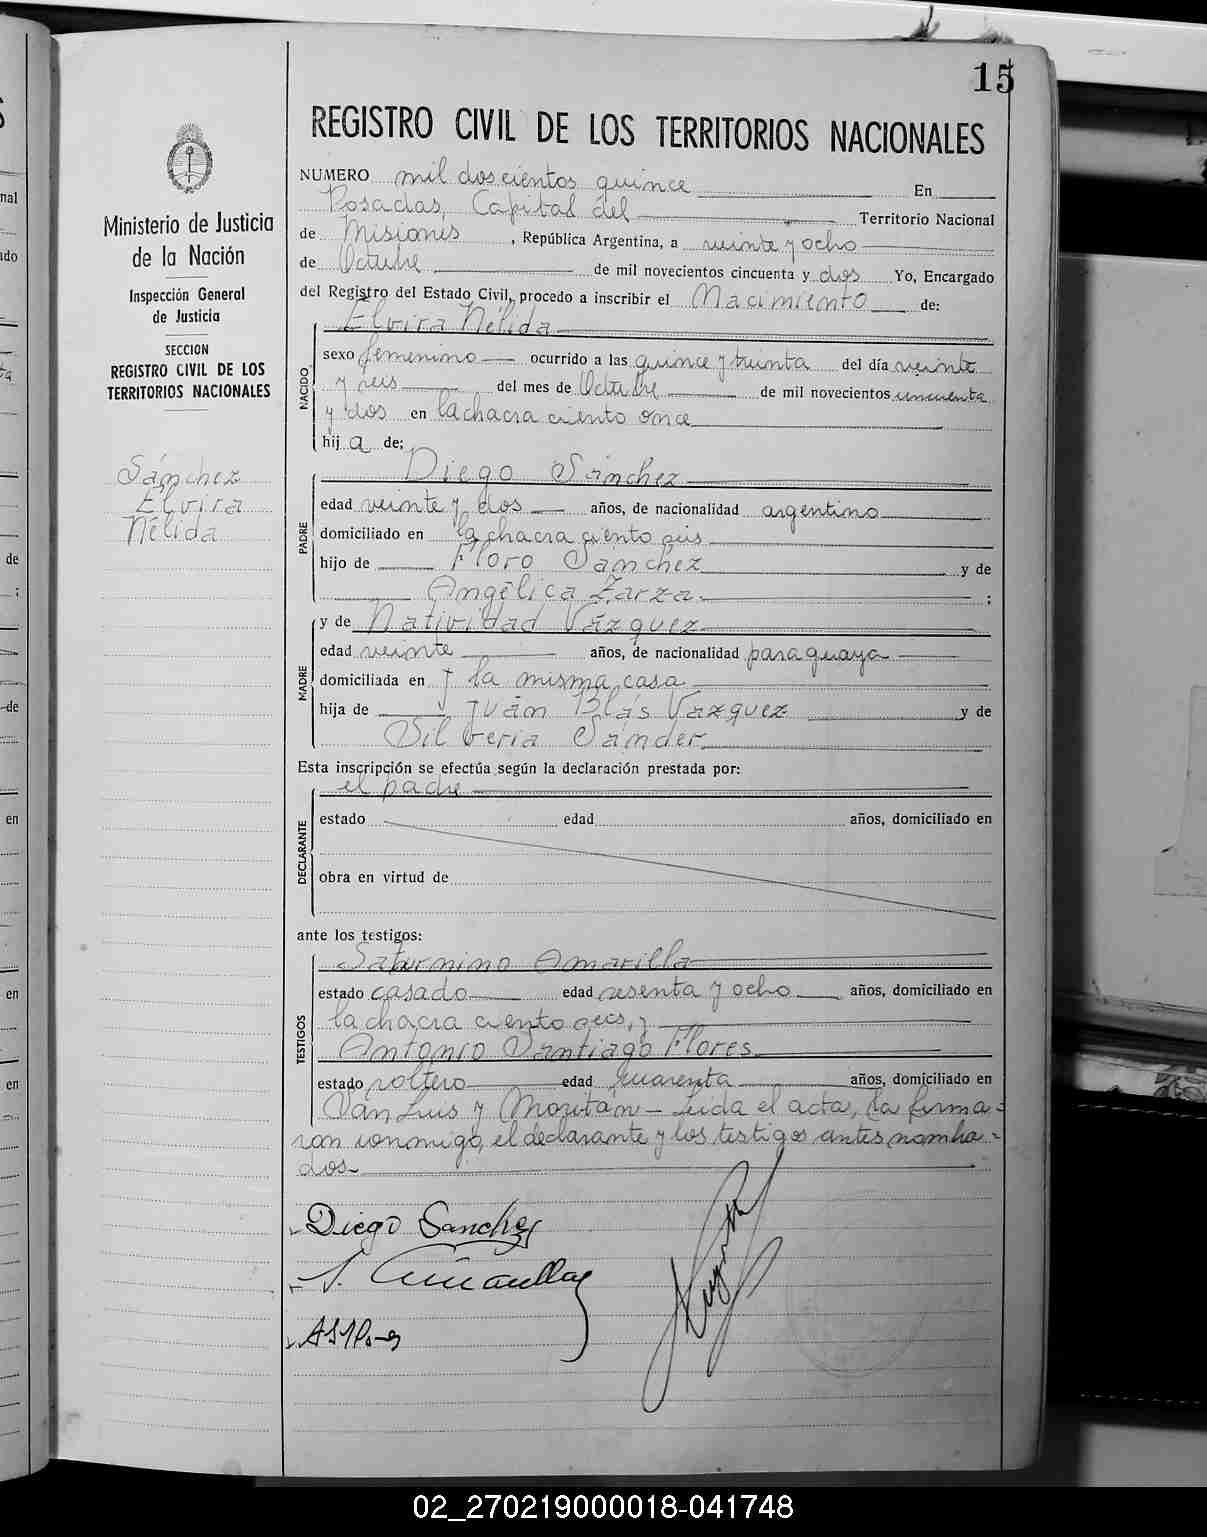 15
REGISTRO CIVIL DE LOS TERRITORIOS NACIONALES
Ministerio de Justicia
de la Nación
Inspección General
de Justicia
SECCION
REGISTRO CIVIL DE LOS
TERRITORIOS NACIONALES
Sánchez
Elvira
Nélida
NUMERO mil doscientos quince En
Posadas, Capital del Territorio Nacional
de Misiones, República Argentina, a veinte y ocho
de Octubre de mil novecientos cincuenta y dos Yo, Encargado
del Registro del Estado Civil, procedo a inscribir el Nacimiento de:
NACIDO
Elvira Nélida
sexo femenino ocurrido a las quince y treinta del día veinte
y seis del mes de Octubre de mil novecientos cincuenta
y dos en la chacra ciento once
hij a de;
PADRE
Diego Sánchez
edad veinte y dos años, de nacionalidad argentino
domiciliado en la chacra ciento seis
hijo de Floro Sánchez y de
Angélica Zarza ;
MADRE
y de Natividad Vázquez
edad veinte años, de nacionalidad paraguaya
domiciliada en la misma casa
hija de Juán Blás Vázquez y de
Silveria Sánder
Esta inscripción se efectúa según la declaración prestada por:
DECLARANTE
el padre
estado edad años, domiciliado en
obra en virtud de
ante los testigos:
TESTIGOS
Saturnino Amarilla
estado casado edad sesenta y ocho años, domiciliado en
la chacra ciento seis, y
Antonio Santiago Flores
estado soltero edad cuarenta años, domiciliado en
San Luis y Moritán - Leida el acta, la firma=
ron conmigo, el declarante y los testigos antes nombra=
dos
Diego Sanchez
S. Amarilla
02_270219000018-041748